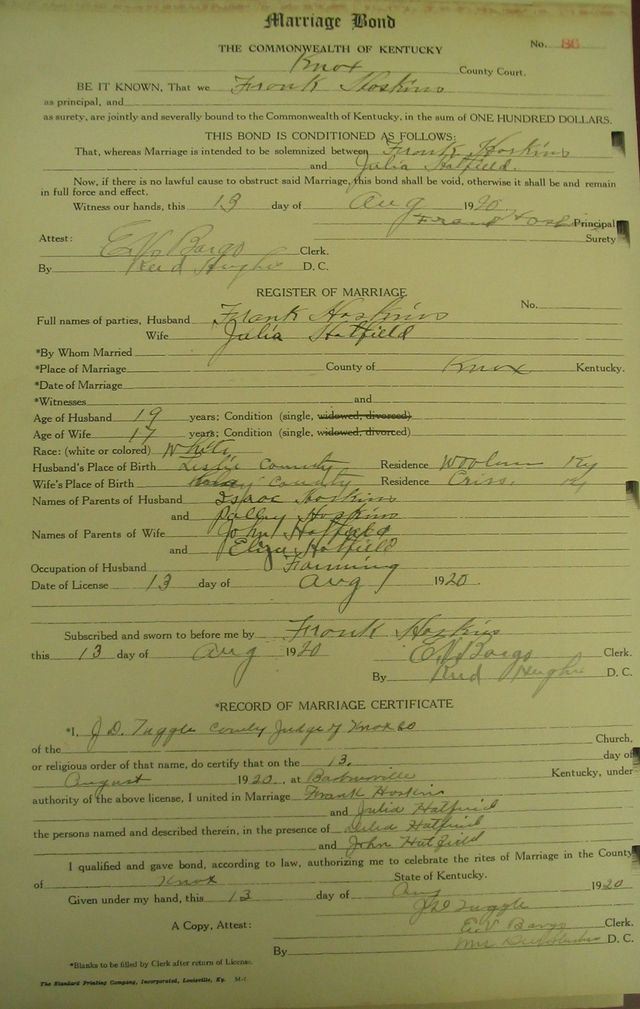 Marriage Bond
THE COMMONWEALTH OF KENTUCKY
No. 86
Knox County Court.
BE IT KNOWN, That we Frank Hoskins
as principal, and
as surety, are jointly and severally bound to the Commonwealth of Kentucky, in the sum of ONE HUNDRED DOLLARS.
THIS BOND IS CONDITIONED AS FOLLOWS:
That, whereas Marriage is intended to be solemnized between Frank Hoskins
and Julia Hatfield.
Now, if there is no lawful cause to obstruct said Marriage, this bond shall be void, otherwise it shall be and remain
in full force and effect.
Witness our hands, this 13 day of Aug 1920
Frank Hoskins Principal
Surety
Attest:
Clerk.
By Reed Hughes D. C.
REGISTER OF MARRIAGE
No.
Full names of parties, Husband Frank Hoskins
Wife Julia Hatfield
*By Whom Married
*Place of Marriage County of Knox Kentucky.
*Date of Marriage
*Witnesses and
Age of Husband 19 years; Condition (single, widowed, divorced)
Age of Wife 17 years; Condition (single, widowed, divorced)
Race: (white or colored) White
Husband's Place of Birth Leslie County Residence Woolum Ky
Wife's Place of Birth County Residence Ky
Names of Parents of Husband Isaac Hoskins
and Hoskins
Names of Parents of Wife John Hatfield
and Hatfield
Occupation of Husband Farming
Date of License 13 day of Aug 1920.
Subscribed and sworn to before me by Frank Hoskins
this 13 day of Aug 1920 Clerk.
By Reed Hughes D. C.
*RECORD OF MARRIAGE CERTIFICATE
*I, J. D. Tuggle County Judge of Knox Co
of the Church,
or religious order of that name, do certify that on the 13. day of
August 1920, at Barbourville Kentucky, under
authority of the above license, I united in Marriage Frank Hoskins
and Julia Hatfield
the persons named and described therein, in the presence of Hatfield
and John Hatfield
I qualified and gave bond, according to law, authorizing me to celebrate the rites of Marriage in the County
of Knox State of Kentucky.
Given under my hand, this 13 day of Aug 1920
J D Tuggle
A Copy, Attest: Clerk.
By D. C.
*Blanks to be filled by Clerk after return of License.
The Standard Printing Company, Incorporated, Louisville, Ky. M-1